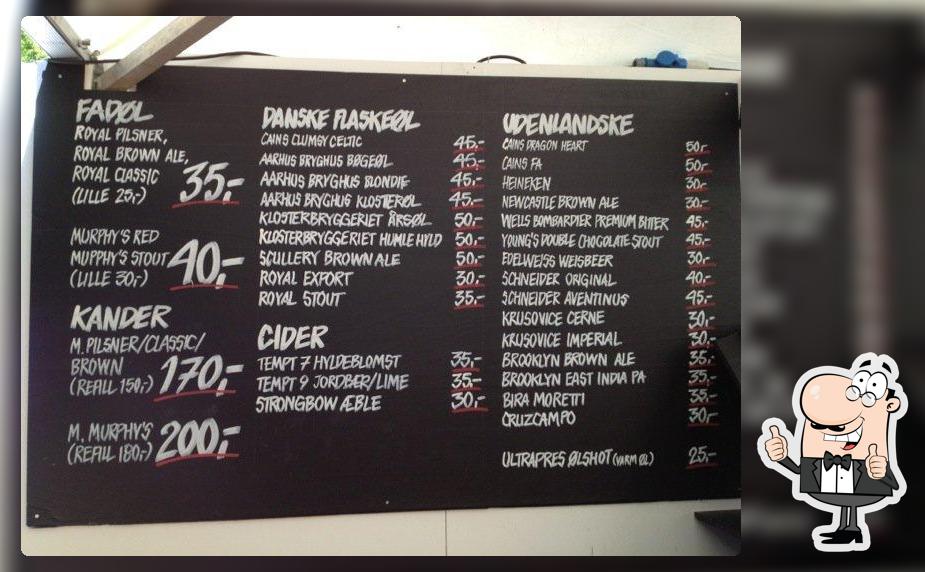 FADØL
ROYAL PILSNER,
ROYAL BROWN ALE,
ROYAL CLASSIC
(LILLE 25,-) 35,-
MURPHY'S RED
MURPHY'S STOUT
(LILLE 30,-) 40,-
KANDER
M. PILSNER/CLASSIC/
BROWN
(REFILL 150,-) 170,-
M. MURPHY'S
(REFILL 180,-) 200,-
DANSKE FLASKEØL
CAINS CLUMSY CELTIC 45,-
AARHUS BRYGHUS BØGEØL 45,-
AARHUS BRYGHUS BLONDIE 45,-
AARHUS BRYGHUS KLOSTERØL 45,-
KLOSTERBRYGGERIET ÅRSØL 50,-
KLOSTERBRYGGERIET HUMLE HYLD 50,-
SCULLERY BROWN ALE 50,-
ROYAL EXPORT 30,-
ROYAL STOUT 35,-
CIDER
TEMPT 7 HYLDEBLOMST 35,-
TEMPT 9 JORDBÆR/LIME 35,-
STRONGBOW ÆBLE 30,-
UDENLANDSKE
CAINS DRAGON HEART 50,-
CAINS FA 50,-
HEINEKEN 30,-
NEWCASTLE BROWN ALE 30,-
WELLS BOMBARDIER PREMIUM BITTER 45,-
YOUNG'S DOUBLE CHOCOLATE STOUT 45,-
EDELWEISS WEISBEER 30,-
SCHNEIDER ORIGINAL 40,-
SCHNEIDER AVENTINUS 45,-
KRUSOVICE CERNE 30,-
KRUSOVICE IMPERIAL 30,-
BROOKLYN BROWN ALE 35,-
BROOKLYN EAST INDIA PA 35,-
BIRA MORETTI 35,-
CRUZCAMPO 30,-
ULTRAPRES ØLSHOT (VARM ØL) 25,-